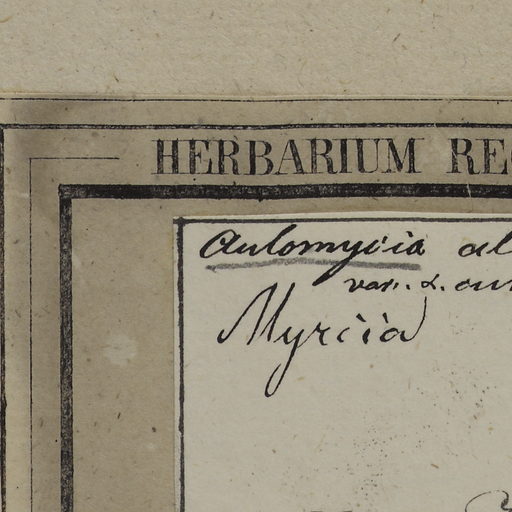 HERBARIUM REG
Aulomyrcia al
var. α. our
Myrcia